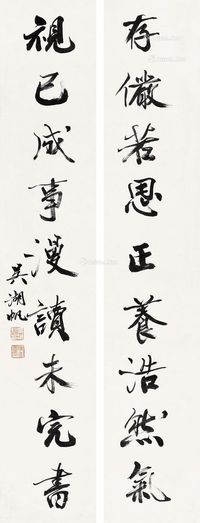 存儼若思正養浩然氣
視已成事漫讀未完書
吳湖帆